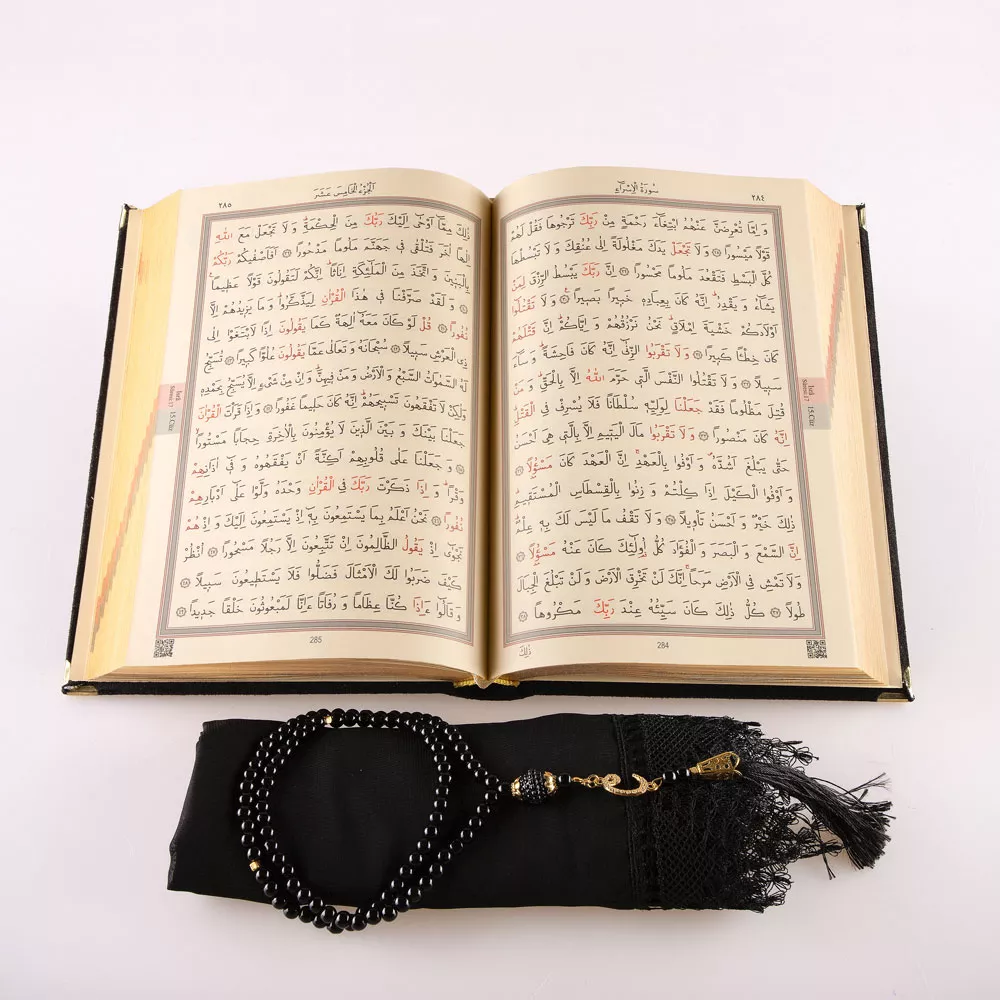 سُورَةُ الْاِسْرَاءِ
٢٨٤
وَ اِمَّا تُعْرِضَنَّ عَنْهُمُ ابْتِغَٓاءَ رَحْمَةٍ مِنْ رَبِّكَ تَرْجُوهَا فَقُلْ لَهُمْ
قَوْلًا مَيْسُورًا ﴿٢٨﴾ وَ لَا تَجْعَلْ يَدَكَ مَغْلُولَةً اِلٰى عُنُقِكَ وَ لَا تَبْسُطْهَا
كُلَّ الْبَسْطِ فَتَقْعُدَ مَلُومًا مَحْسُورًا ﴿٢٩﴾ اِنَّ رَبَّكَ يَبْسُطُ الرِّزْقَ لِمَنْ
يَشَٓاءُ وَ يَقْدِرُ اِنَّهُ كَانَ بِعِبَادِهٖ خَبِيرًا بَصِيرًا ﴿٣٠﴾ وَ لَا تَقْتُلُٓوا
اَوْلَادَكُمْ خَشْيَةَ اِمْلَاقٍ نَحْنُ نَرْزُقُهُمْ وَ اِيَّاكُمْ اِنَّ قَتْلَهُمْ
كَانَ خِطْـًٔا كَبِيرًا ﴿٣١﴾ وَ لَا تَقْرَبُوا الزِّنٰٓى اِنَّهُ كَانَ فَاحِشَةً وَ سَٓاءَ
سَبِيلًا ﴿٣٢﴾ وَ لَا تَقْتُلُوا النَّفْسَ الَّتِي حَرَّمَ اللّٰهُ اِلَّا بِالْحَقِّ وَ مَنْ
قُتِلَ مَظْلُومًا فَقَدْ جَعَلْنَا لِوَلِيِّهٖ سُلْطَانًا فَلَا يُسْرِفْ فِي الْقَتْلِ
اِنَّهُ كَانَ مَنْصُورًا ﴿٣٣﴾ وَ لَا تَقْرَبُوا مَالَ الْيَتِيمِ اِلَّا بِالَّتِي هِيَ اَحْسَنُ
حَتّٰى يَبْلُغَ اَشُدَّهُ وَ اَوْفُوا بِالْعَهْدِ اِنَّ الْعَهْدَ كَانَ مَسْؤُلًا ﴿٣٤﴾
وَ اَوْفُوا الْكَيْلَ اِذَا كِلْتُمْ وَ زِنُوا بِالْقِسْطَاسِ الْمُسْتَقِيمِ
ذٰلِكَ خَيْرٌ وَ اَحْسَنُ تَأْوِيلًا ﴿٣٥﴾ وَ لَا تَقْفُ مَا لَيْسَ لَكَ بِهٖ عِلْمٌ
اِنَّ السَّمْعَ وَ الْبَصَرَ وَ الْفُؤَادَ كُلُّ اُولٰٓئِكَ كَانَ عَنْهُ مَسْؤُلًا ﴿٣٦﴾
وَ لَا تَمْشِ فِي الْاَرْضِ مَرَحًا اِنَّكَ لَنْ تَخْرِقَ الْاَرْضَ وَ لَنْ تَبْلُغَ الْجِبَالَ
طُولًا ﴿٣٧﴾ كُلُّ ذٰلِكَ كَانَ سَيِّئُهُ عِنْدَ رَبِّكَ مَكْرُوهًا ﴿٣٨﴾
284
ذٰلِكَ
İsrâ
Sûresi:17
15.Cüz
اَلْجُزْءُ الْخَامِسَ عَشَرَ
٢٨٥
ذٰلِكَ مِمَّٓا اَوْحٰٓى اِلَيْكَ رَبُّكَ مِنَ الْحِكْمَةِ وَ لَا تَجْعَلْ مَعَ اللّٰهِ
اِلٰهًا اٰخَرَ فَتُلْقٰى فِي جَهَنَّمَ مَلُومًا مَدْحُورًا ﴿٣٩﴾ اَفَاَصْفٰيكُمْ رَبُّكُمْ
بِالْبَنِينَ وَ اتَّخَذَ مِنَ الْمَلٰٓئِكَةِ اِنَاثًا اِنَّكُمْ لَتَقُولُونَ قَوْلًا عَظِيمًا
﴿٤٠﴾ وَ لَقَدْ صَرَّفْنَا فِي هٰذَا الْقُرْاٰنِ لِيَذَّكَّرُوا وَ مَا يَزِيدُهُمْ اِلَّا
نُفُورًا ﴿٤١﴾ قُلْ لَوْ كَانَ مَعَهُٓ اٰلِهَةٌ كَمَا يَقُولُونَ اِذًا لَابْتَغَوْا اِلٰى
ذِي الْعَرْشِ سَبِيلًا ﴿٤٢﴾ سُبْحَانَهُ وَ تَعَالٰى عَمَّا يَقُولُونَ عُلُوًّا كَبِيرًا ﴿٤٣﴾ تُسَبِّحُ
لَهُ السَّمٰوَاتُ السَّبْعُ وَ الْاَرْضُ وَ مَنْ فِيهِنَّ وَ اِنْ مِنْ شَيْءٍ اِلَّا يُسَبِّحُ بِحَمْدِهٖ
وَلٰكِنْ لَا تَفْقَهُونَ تَسْبِيحَهُمْ اِنَّهُ كَانَ حَلِيمًا غَفُورًا ﴿٤٤﴾ وَ اِذَا قَرَأْتَ الْقُرْاٰنَ
جَعَلْنَا بَيْنَكَ وَ بَيْنَ الَّذِينَ لَا يُؤْمِنُونَ بِالْاٰخِرَةِ حِجَابًا مَسْتُورًا
﴿٤٥﴾ وَ جَعَلْنَا عَلٰى قُلُوبِهِمْ اَكِنَّةً اَنْ يَفْقَهُوهُ وَ فِٓي اٰذَانِهِمْ
وَقْرًا وَ اِذَا ذَكَرْتَ رَبَّكَ فِي الْقُرْاٰنِ وَحْدَهُ وَلَّوْا عَلٰٓى اَدْبَارِهِمْ
نُفُورًا ﴿٤٦﴾ نَحْنُ اَعْلَمُ بِمَا يَسْتَمِعُونَ بِهٖٓ اِذْ يَسْتَمِعُونَ اِلَيْكَ وَ اِذْ هُمْ
نَجْوٰٓى اِذْ يَقُولُ الظَّالِمُونَ اِنْ تَتَّبِعُونَ اِلَّا رَجُلًا مَسْحُورًا ﴿٤٧﴾ اُنْظُرْ
كَيْفَ ضَرَبُوا لَكَ الْاَمْثَالَ فَضَلُّوا فَلَا يَسْتَطِيعُونَ سَبِيلًا ﴿٤٨﴾
وَ قَالُٓوا ءَاِذَا كُنَّا عِظَامًا وَ رُفَاتًا ءَاِنَّا لَمَبْعُوثُونَ خَلْقًا جَدِيدًا ﴿٤٩﴾
285
İsrâ
Sûresi:17
15.Cüz